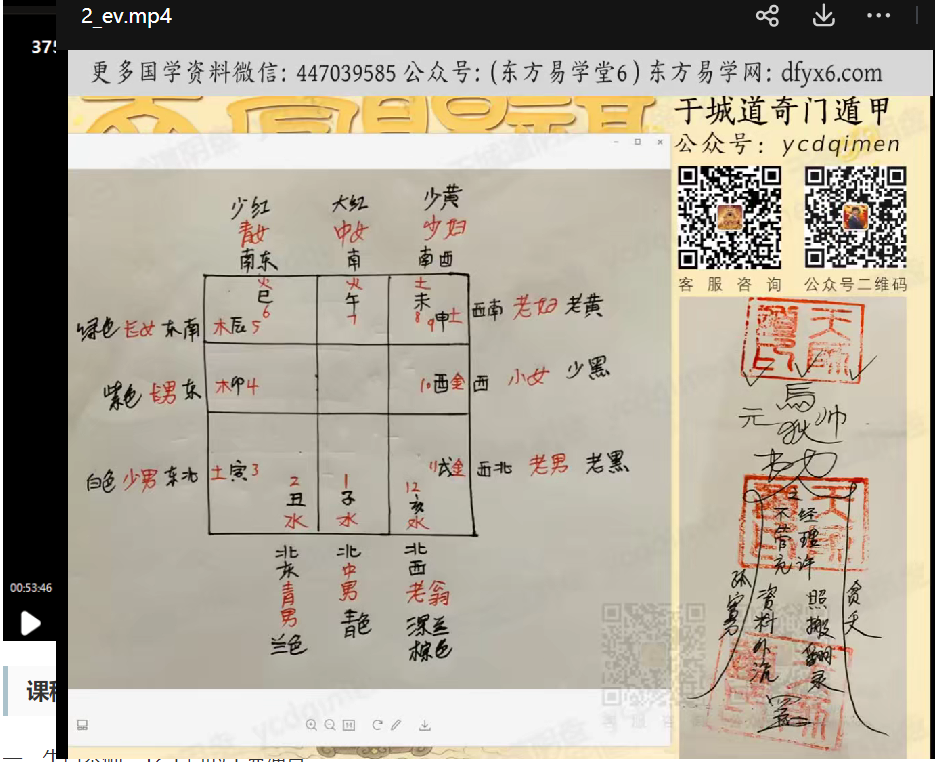 2_ev.mp4
375
更多国学资料微信: 447039585 公众号: (东方易学堂6) 东方易学网: dfyx6.com
于城道奇门遁甲
公众号: ycdqimen
客 服 咨 询 公众号二维码
少红 大红 少黄
青女 中女 少妇
南东 南 南西
火 火 土
巳 午 未
6 7 8
绿色 长女 东南 木辰5 9申土 西南 老妇 老黄
紫色 长男 东 木卯4 10酉金 西 小女 少黑
白色 少男 东北 土寅3 11戌金 西北 老男 老黑
2 1 12
丑 子 亥
水 水 水
北东 北 北西
青男 中男 老翁
兰色 青色 深豆棕色
元 帅
经理许
不管充
照搬翻录
资料外流
00:53:46
ycdqimen
客服咨询
课程